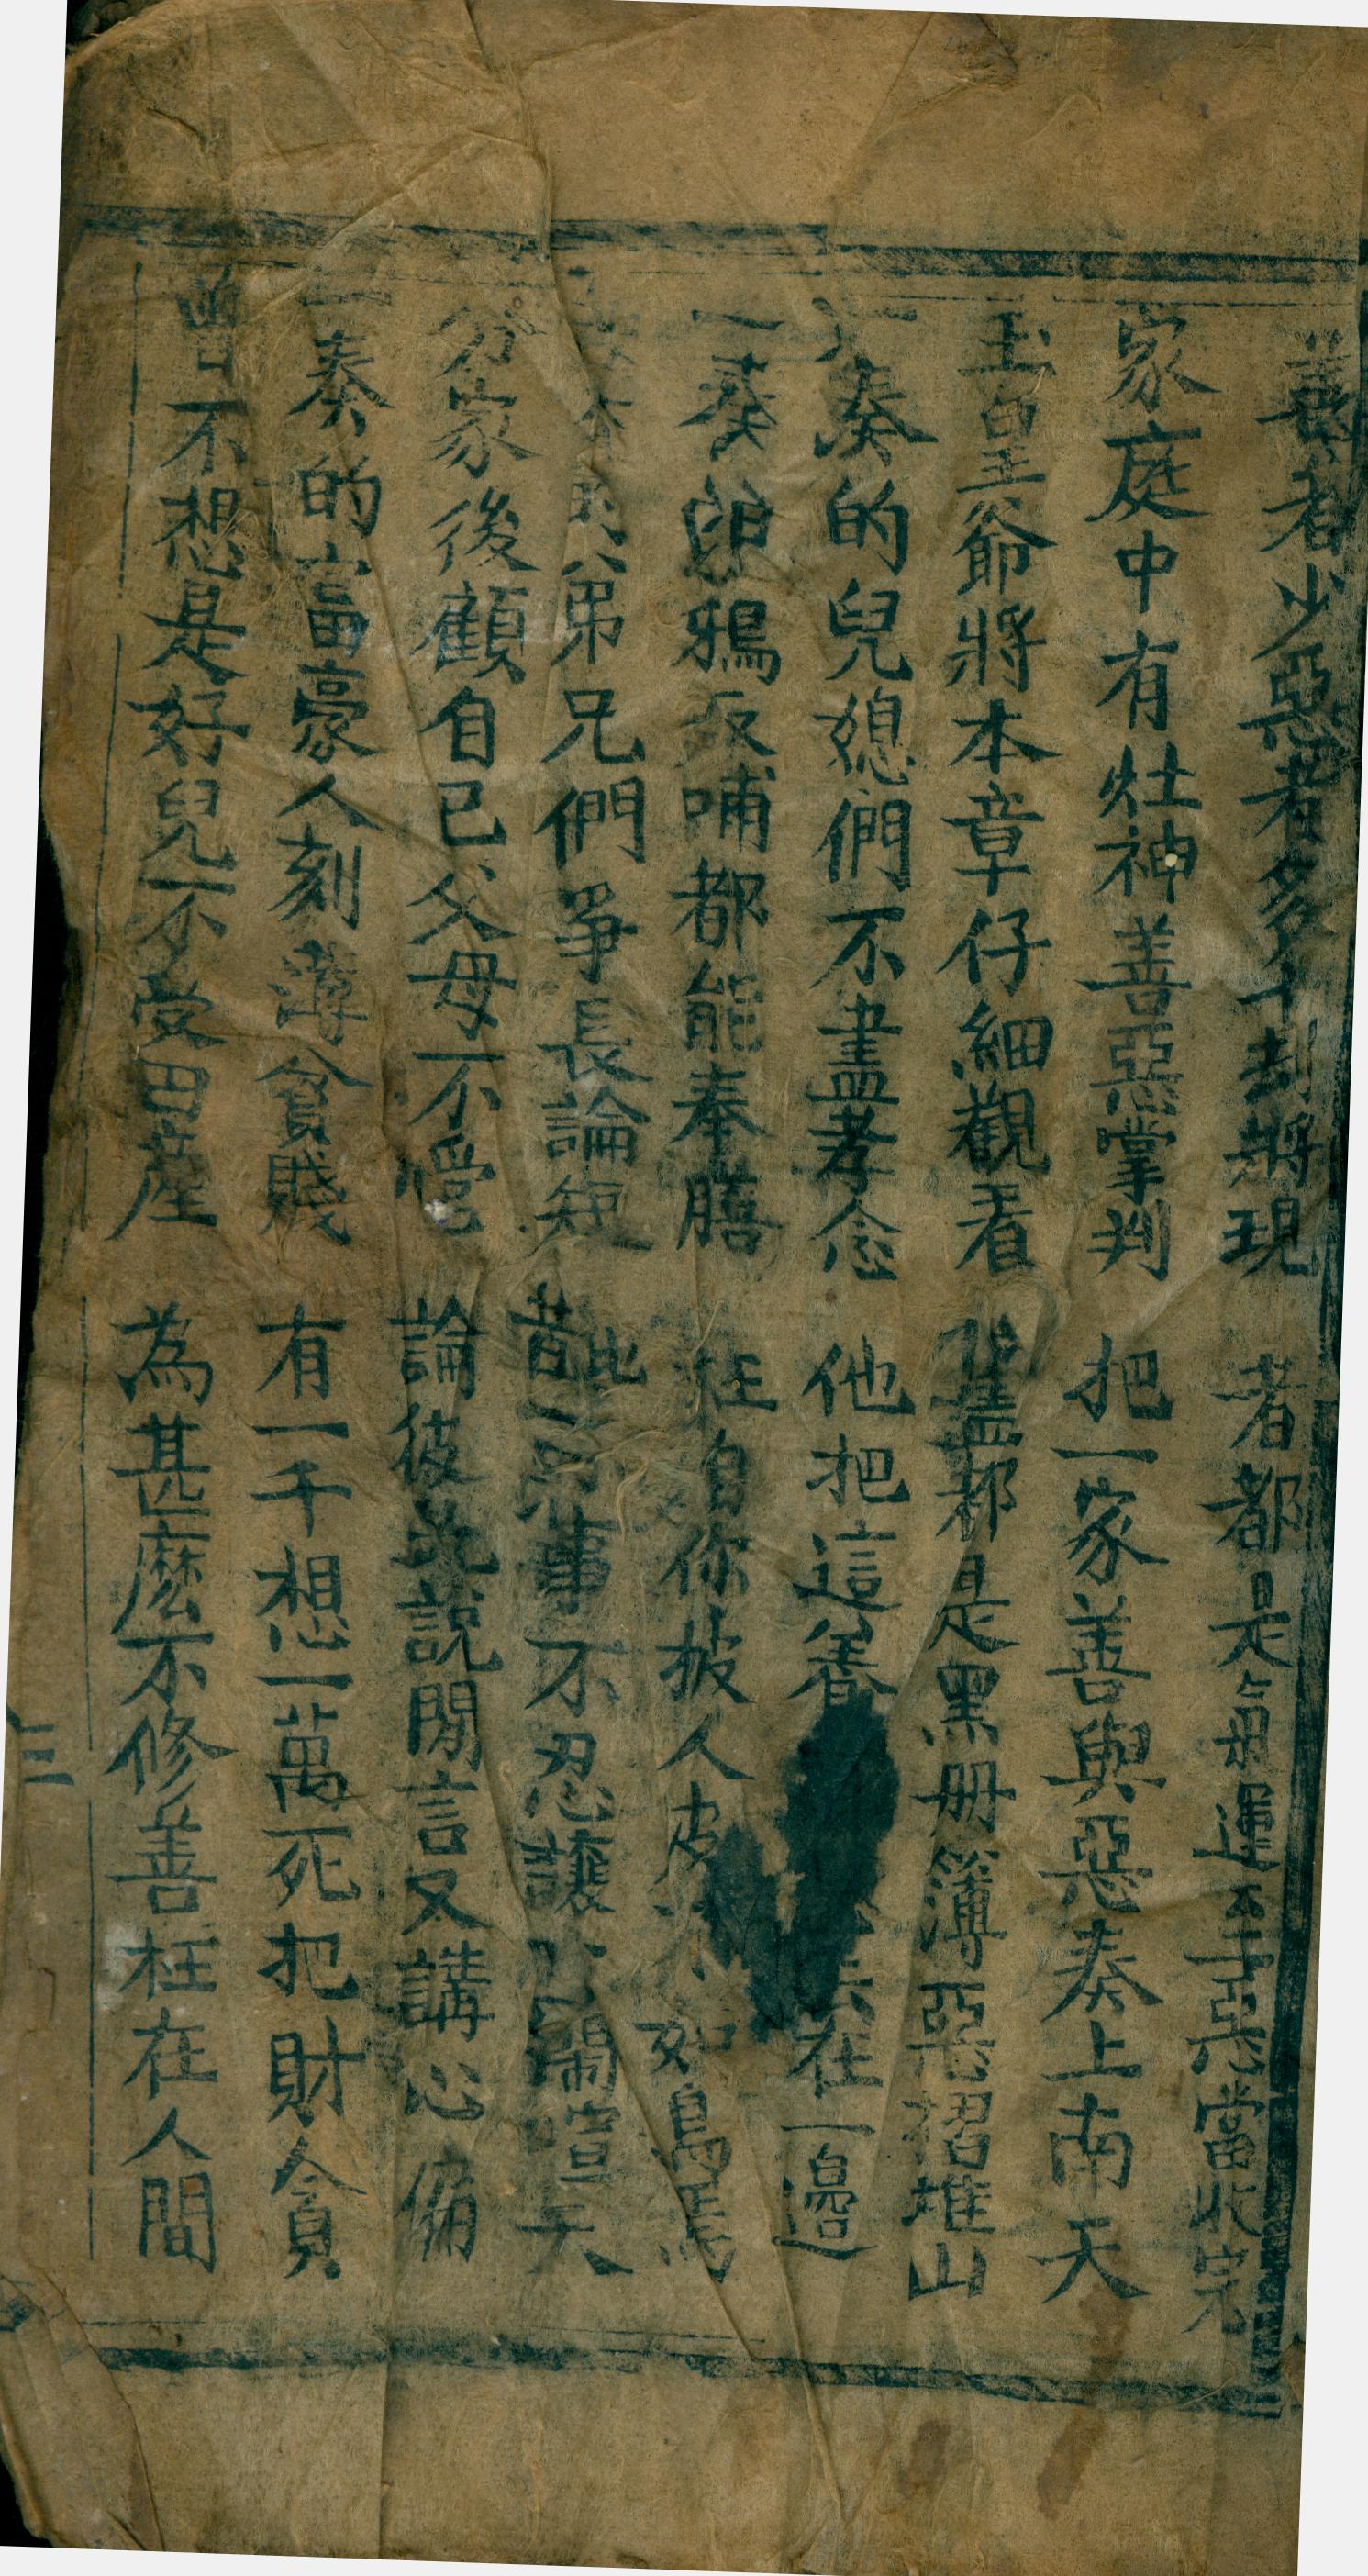 善者少惡者多大劫將現 者都是氣運至惡當收完
家庭中有灶神善惡掌判 把一家善與惡奏上南天
玉皇爺將本章仔細觀看 盡都是黑册簿惡摺堆山
一奏的兒媳們不盡孝念 他把這養 在一邊
一奏的鴉反哺都能奉膳 枉自你披人皮不如鳥焉
奏的弟兄們爭長論短 些事不忍讓鬧喧天
分家後顧自已父母不管 論彼此說閒言又講心偏
一奏的富豪人刻薄貧賤 有一千想一萬死把財貪
豈不想是好兒不受田產 為甚麽不修善枉在人間
三